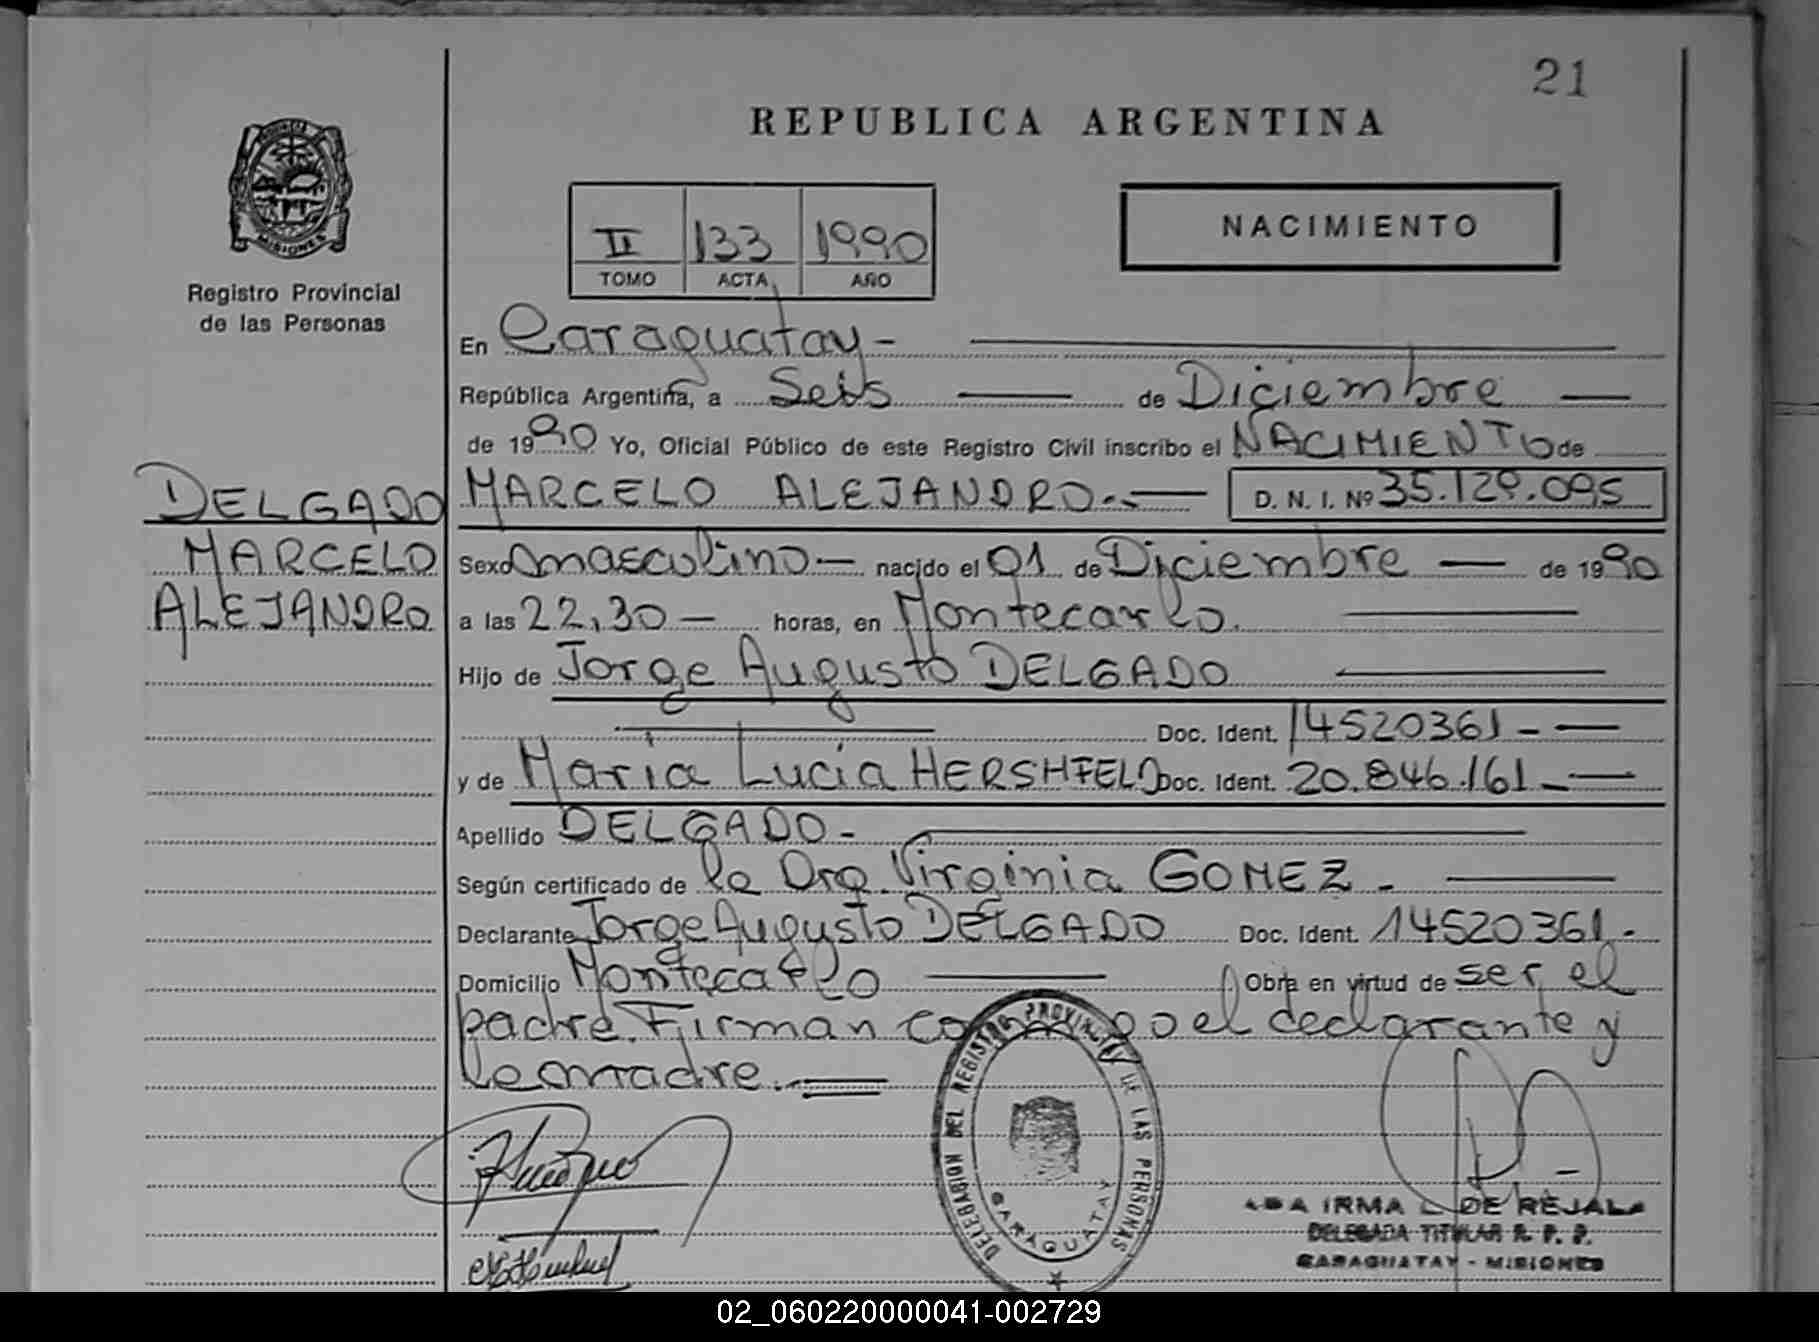 21
REPUBLICA ARGENTINA
MISIONES
Registro Provincial
de las Personas
II 133 1990
TOMO ACTA AÑO
NACIMIENTO
En Caraguatay -
República Argentina, a Seis de Diciembre
de 1990 Yo, Oficial Público de este Registro Civil inscribo el NACIMIENTO de
DELGADO
MARCELO
ALEJANDRO
MARCELO ALEJANDRO.- D. N. I. Nº 35.129.095
Sexo masculino nacido el 01 de Diciembre de 1990
a las 22,30 horas, en Montecarlo.
Hijo de Jorge Augusto DELGADO
Doc. Ident. 14520361 -
y de Maria Lucia HERSHFELD Doc. Ident. 20.846.161 -
Apellido DELGADO -
Según certificado de la Dra. Virginia GOMEZ -
Declarante Jorge Augusto DELGADO Doc. Ident. 14520361.
Domicilio Montecarlo Obra en virtud de ser el
padre. Firman conmigo el declarante y
la madre.
DELEGADON DEL REGISTRO PROVINCIAL DE LAS PERSONAS
CARAGUATAY
IRMA DE REJALA
DELEGADA TITULAR R. P. P.
CARAGUATAY - MISIONES
02_060220000041-002729